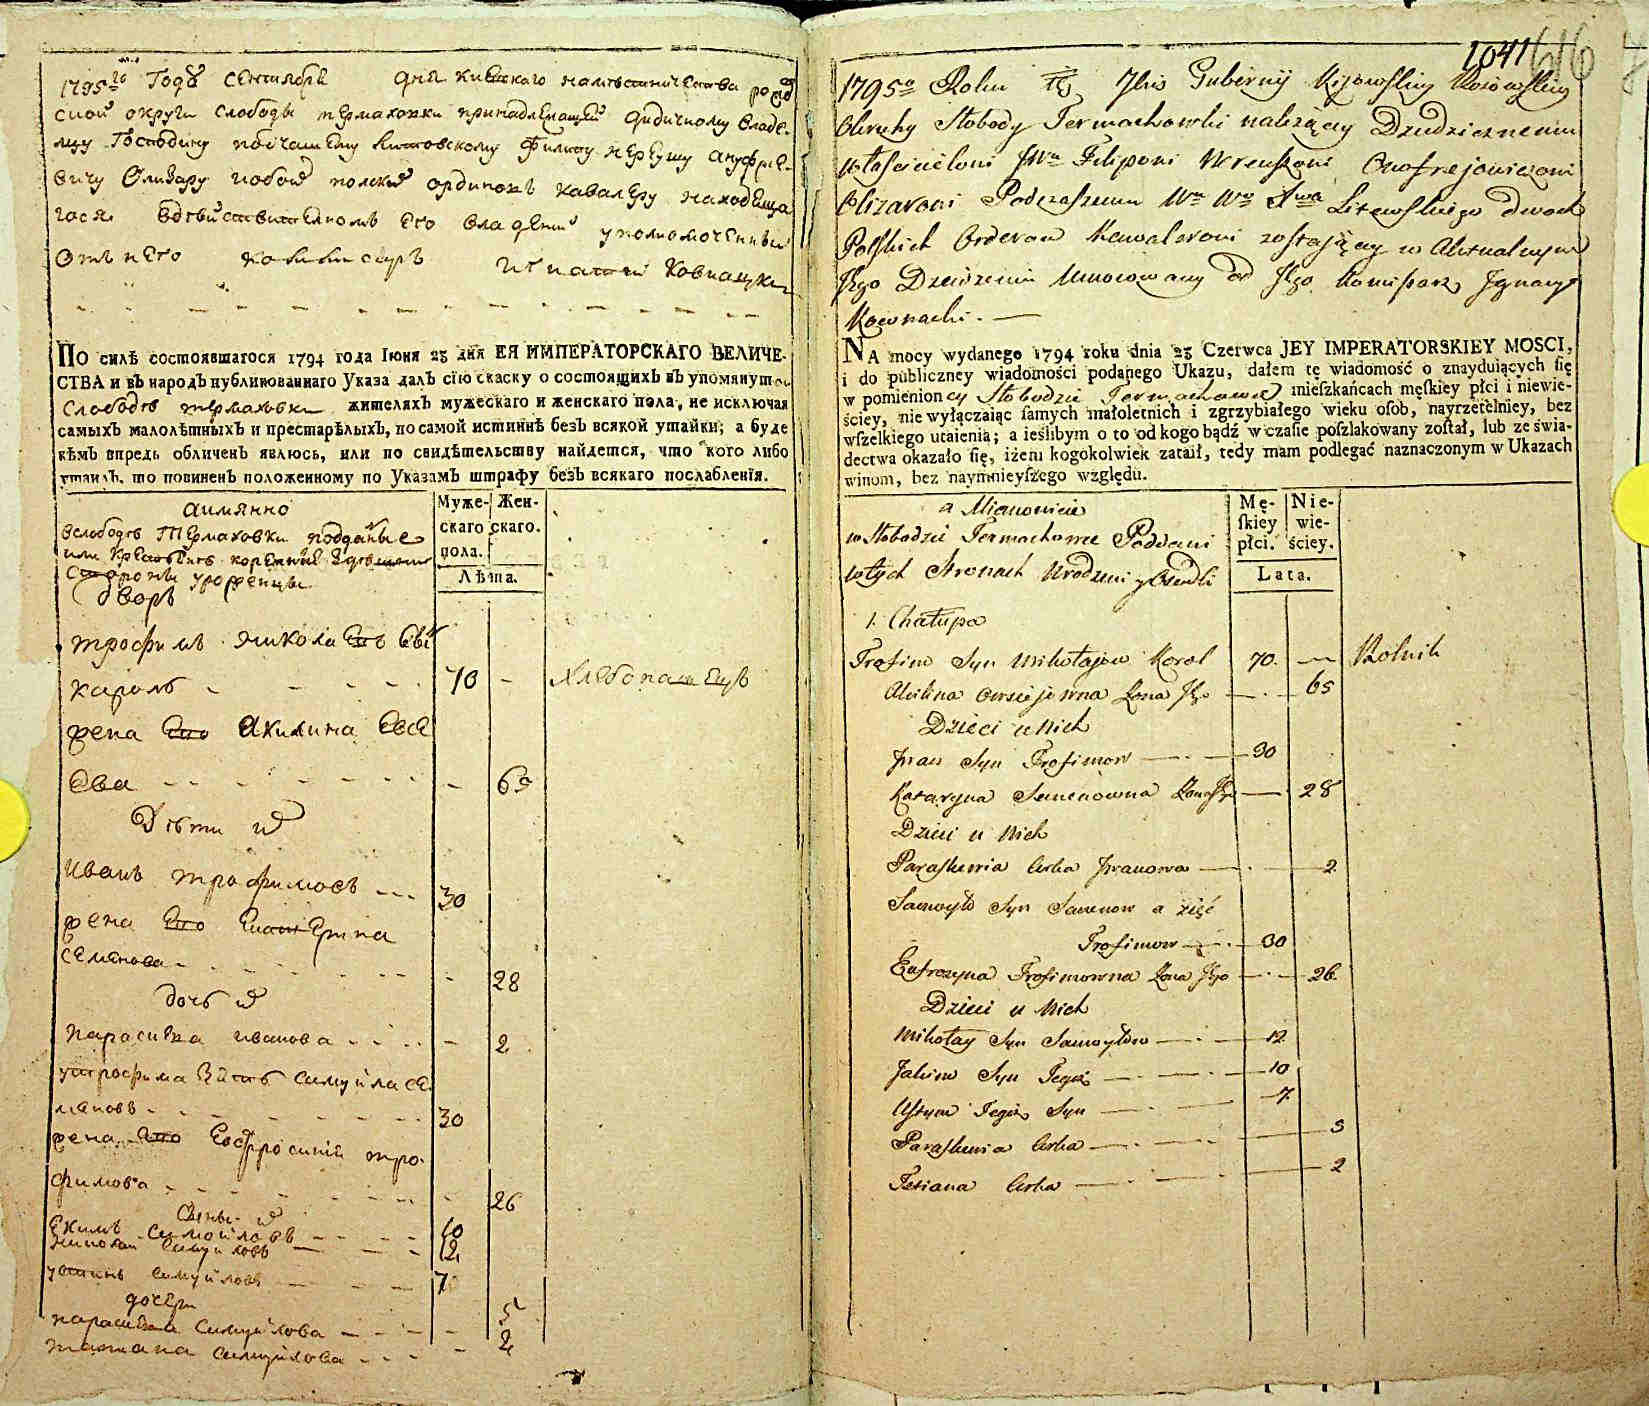 1795го Года Сентября дня Киевскаго наместничества
ской округи слободы термаховки принадлежащей дидичному владе-
лцу Господину подчашему литовскому Филипу нереушу ануфрие-
вичу Олизару полских ординовъ кавалеру находяща
гося вдействителномъ его владении уполномоченный
отъ него комисаръ игнатий Ковнацки
По силѣ состоявшагося 1794 года Іюня 23 дня ЕЯ ИМПЕРАТОРСКАГО ВЕЛИЧЕ-
СТВА и въ народъ публикованнаго Указа далъ сію скаску о состоящихъ въ упомянутой
Слободѣ термаховки жителяхъ мужескаго и женскаго пола, не исключая
самыхъ малолѣтныхъ и престарѣлыхъ, по самой истиннѣ безъ всякой утайки; а буде
кѣмъ впредь обличенъ явлюсь, или по свидѣтельству найдется, что кого либо
утаилъ, то повиненъ положенному по Указамъ штрафу безъ всякаго послабленія.
Муже- Жен-
скаго скаго.
пола.
Лѣта.
аимянно
вслободѣ Термаховки подданые
или Крестьянѣ
Стороны уроженцы
дворъ
трофимъ николаевъ
кароль - 70 - Хлебопашецъ
жена его Акилина Евсе
ева - 65
Дѣти их
иванъ трофимовъ 30
жена его Екатерина
Семенова - 28
дочь их
параскева иванова - 2
утрофима зять самуйла се
меновъ 30
жена его Евфросиния тро-
фимова - 26
Сыны их
Екимъ Самойловъ 10
николай самуйловъ 12
устинъ самуйловъ 7
дочери
параскева самуйлова - 5
татиана самуйлова - 2
1041 616
1795o Roku 7bris Gubernij Kijowskiey
Okruhy Słobody Termachowki należący Dziedzicznemu
właścicielowi JWu Filiponi Onofrejowiczowi
Olizarowi Podczaszemu Litewskiego dwoch
Polskich Orderow Kawalerowi zostaiący w Aktualnym
Jego Dzierzeniu Umocowany od Jego Komisarz Ignacy
Kownacki.
NA mocy wydanego 1794 roku dnia 23 Czerwca JEY IMPERATORSKIEY MOSCI,
i do publiczney wiadomości podanego Ukazu, dałem tę wiadomość o znayduiących się
w pomienioney Słobodzie Termachowce mieſzkańcach męſkiey płci i niewie-
ściey, nie wyłączaiąc ſamych małoletnich i zgrzybiałego wieku oſob, nayrzetelniey, bez
wſzelkiego utaienia; a ieślibym o to od kogo bądź w czaſie poſzlakowany zoſtał, lub ze świa-
dectwa okazało ſię, iżem kogokolwiek zataił, tedy mam podlegać naznaczonym w Ukazach
winom, bez naymnieyſzego względu.
Mę- Nie-
ſkiey wie-
płci. ściey.
Lata.
a Mianowicie
w Słobodzie Termachowce Poddani
wtych Stronach Urodzeni y Osiedli
1. Chałupa
Trofim Syn Mikołajow Korol 70. — Rolnik
Akilina Owsiejewna Żona Jego — 65
Dzieci u Nich
Jwan Syn Trofimow — 30
Kataryna Semenowna Żona Jego — 28
Dzieci u Nich
Paraskewia Corka Jwanowa — 2
Samoyło Syn Semenow a zięć
Trofimow — 30
Eufrozyna Trofimowna Żona Jego — 26
Dzieci u Nich
Mikołay Syn Samoyłow — 12
Jakim Syn Tegoż — 10
Ustym Tegoż Syn — 7
Paraskewia Corka — 5
Tetiana Corka — 2